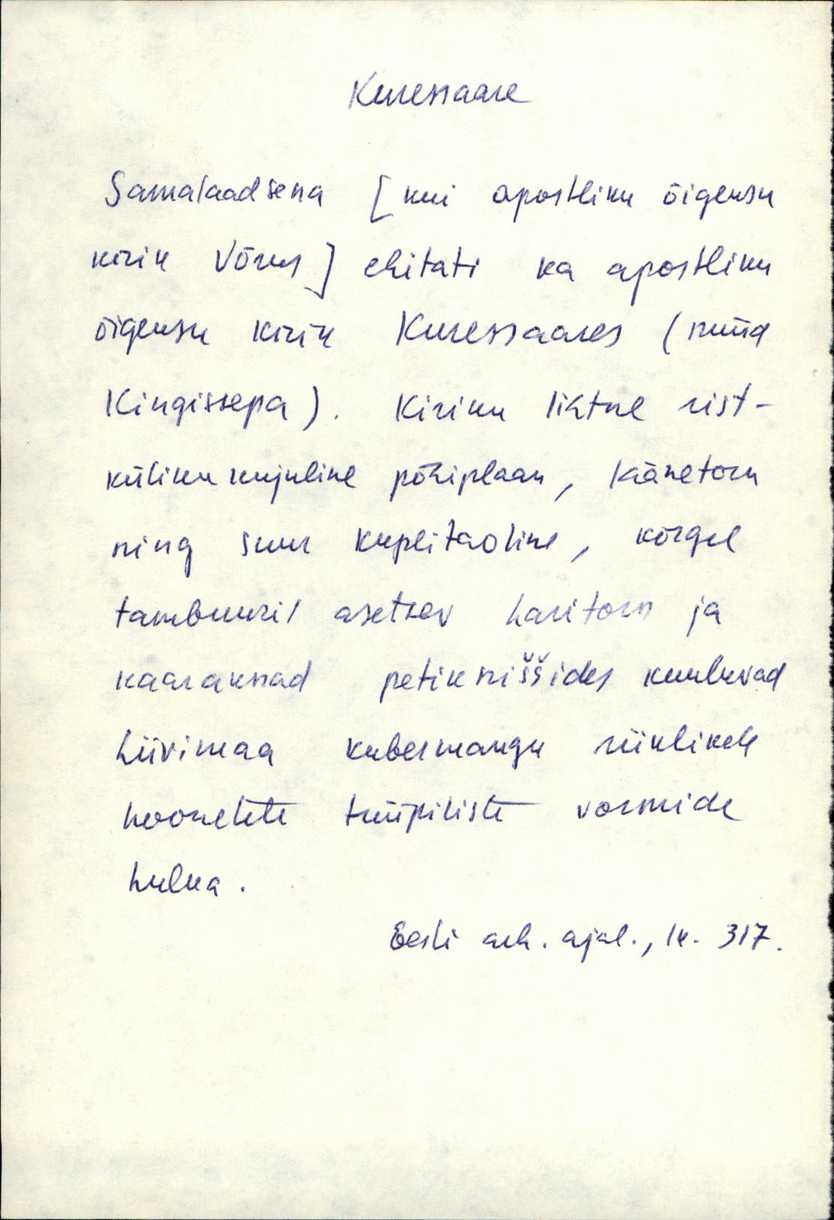 Kuressaare
Samalaadsena [kui apostliku õigeusu
kirik Võrus] ehitati ka apostliku
õigeusu kirik Kuressaares (nüüd
Kingissepa). Kiriku lihtne rist-
külikukujuline põhiplaan, läänetorn
ning suur kuplitaoline, kõrgel
tambuuril asetsev haritorn ja
kaaraknad petikniššides kuuluvad
Liivimaa kubermangu riiklikele
hoonetele tüüpiliste vormide
hulka.
Eesti arh. ajal., lk. 317.